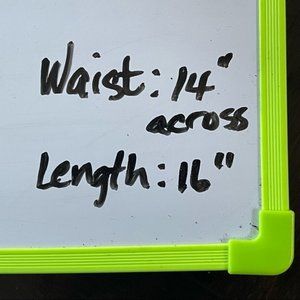 Waist: 14"
across
Length: 16"